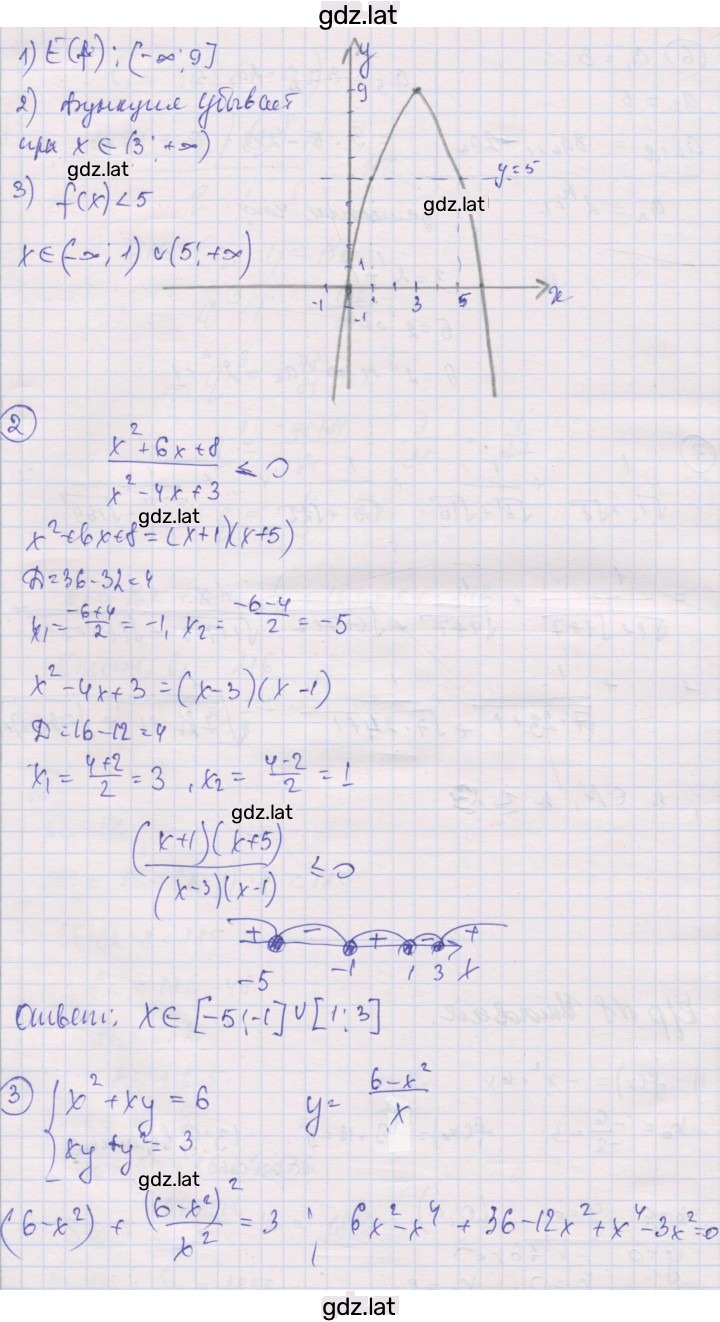 gdz.lat
1) E(f): [-∞; 9]
2) Функция убывает
при x ∈ (3; +∞)
gdz.lat
3) f(x) < 5
x ∈ (-∞; 1) ∪ (5; +∞)
y
9
y = 5
gdz.lat
1
-1 3 5 x
-1
2
(x²+6x+8)/(x²-4x+3) ≤ 0
gdz.lat
x²+6x+8 = (x+1)(x+5)
Д = 36-32 = 4
x₁ = (-6+4)/2 = -1, x₂ = (-6-4)/2 = -5
x²-4x+3 = (x-3)(x-1)
Д = 16-12 = 4
x₁ = (4+2)/2 = 3, x₂ = (4-2)/2 = 1
gdz.lat
((x+1)(x+5))/((x-3)(x-1)) ≤ 0
+ - + - +
-5 -1 1 3 x
Ответ: x ∈ [-5; -1] ∪ [1; 3]
3 { x² + xy = 6 y = (6-x²)/x
xy + y² = 3
gdz.lat
(6-x²) + (6-x²)²/x² = 3 ; 6x²-x⁴ + 36-12x²+x⁴-3x²=0
gdz.lat